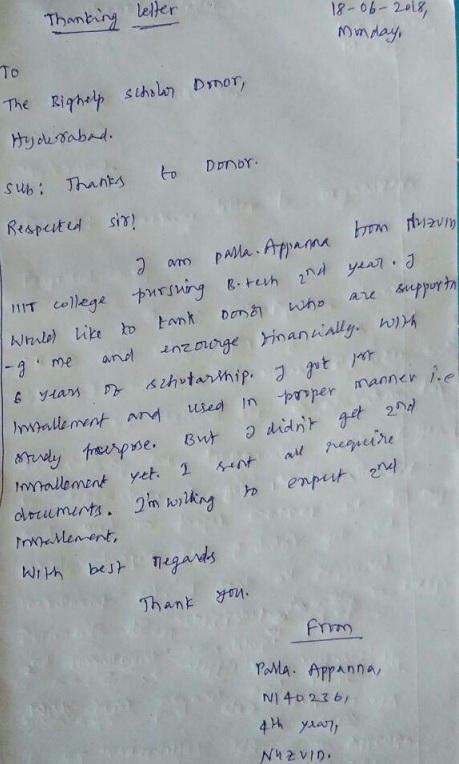 Thanking letter
18-06-2018,
Monday.
To
The Bighelp scholar Donor,
Hyderabad.
Sub: Thanks to Donor.
Respected sir!
I am palla. Appanna from Nuzvid
IIIT college pursuing B.tech 2nd year. I
would like to tank donor who are supportn
-g me and encourge financially. With
6 years of scholarship. I got 1st
installement and used in proper manner i.e
study purpose. But I didn't get 2nd
installement yet. I sent all require
documents. I'm willing to expect 2nd
installement.
With best regards
Thank you.
From
Palla. Appanna,
N140236,
4th year,
Nuzvid.